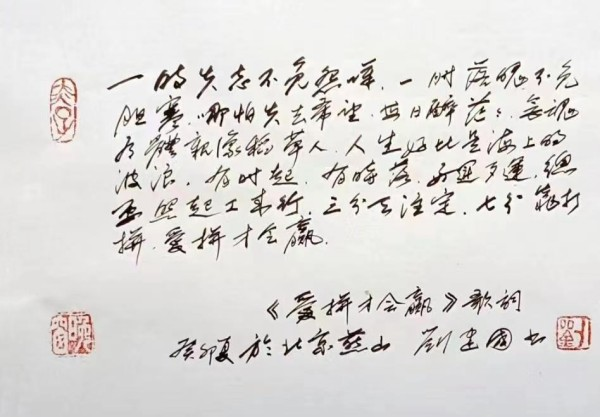 一時失志不免怨嘆，一時落魄不免
胆寒，哪怕失去希望，每日醉茫茫，無魂
有體親像稻草人，人生好比是海上的
波浪，有时起，有時落，好運歹運，總
要照起工來行，三分天注定，七分靠打
拼，愛拼才会贏。
《愛拼才会贏》歌詞
癸卯夏於北京燕山 劉建國书